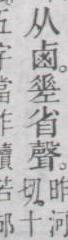 从鹵。省聲。昨河
切。十
字當作讀若